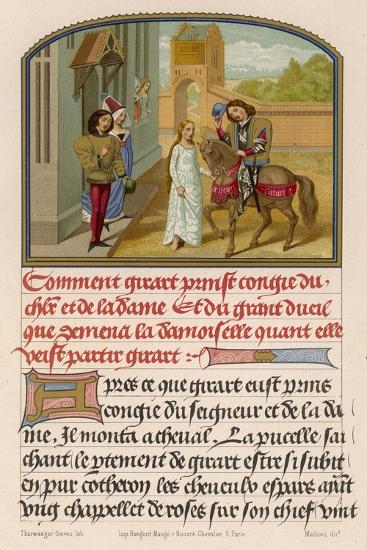 Girart
Comment girart prinst congie du
chlr et de la dame Et du grant dueil
que demena la damoiselle quant elle
veist partir girart :~
Apres ce que girart eust prins
congie du seigneur et de la da
me, Il monta a cheval. La pucelle sai
chant le ptement de girart estre si subit
en pur cotheron les cheveulx espars aiant
vng chappellet de roses sur son chief vint
Thurwanger freres, lith Imp. Hangard Maugé r. Honoré-Chevalier, 5, Paris. Mathieu, dir.t